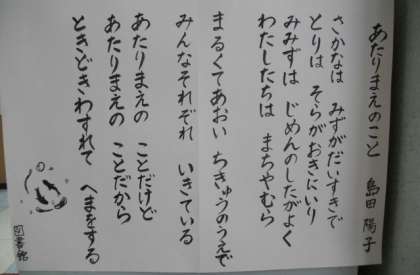 あたりまえのこと　島田 陽子
さかなは　みずがだいすきで
とりは　そらがおきにいり
みみずは　じめんのしたがよく
わたしたちは　まちやむら
まるくてあおい　ちきゅうのうえで
みんなそれぞれ　いきている
あたりまえの　ことだけど
あたりまえの　ことだから
ときどきわすれて　へまをする
図書館